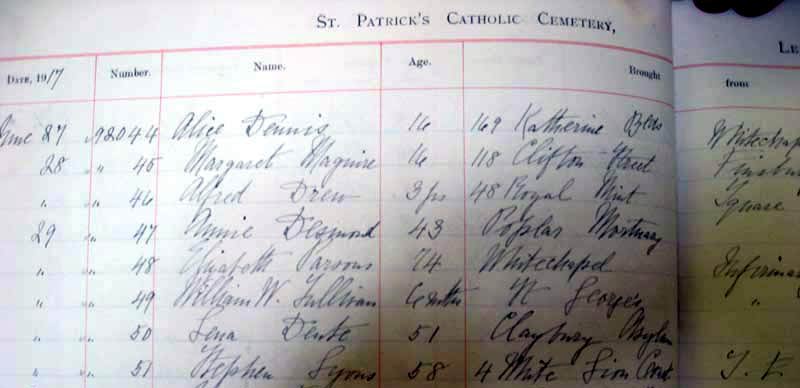 ST. PATRICK'S CATHOLIC CEMETERY,
LE
DATE, 1917 Number. Name. Age. Brought from
June 27 92044 Alice Dennis 16 169 Katherine Whitechap
28 " 45 Margaret Maguire 16 118 Clifton Street Finsbu
" " 46 Alfred Drew 3 yrs 48 Royal Mint Square
29 " 47 Annie Desmond 43 Poplar Mortuary
" " 48 Elizabeth Parsons 74 Whitechapel Infirma
" " 49 William W. Sullivan 6 mths St George's "
" " 50 Lena Dente 51 Claybury Asylum
" " 51 Stephen Lyons 58 4 White Lion Court